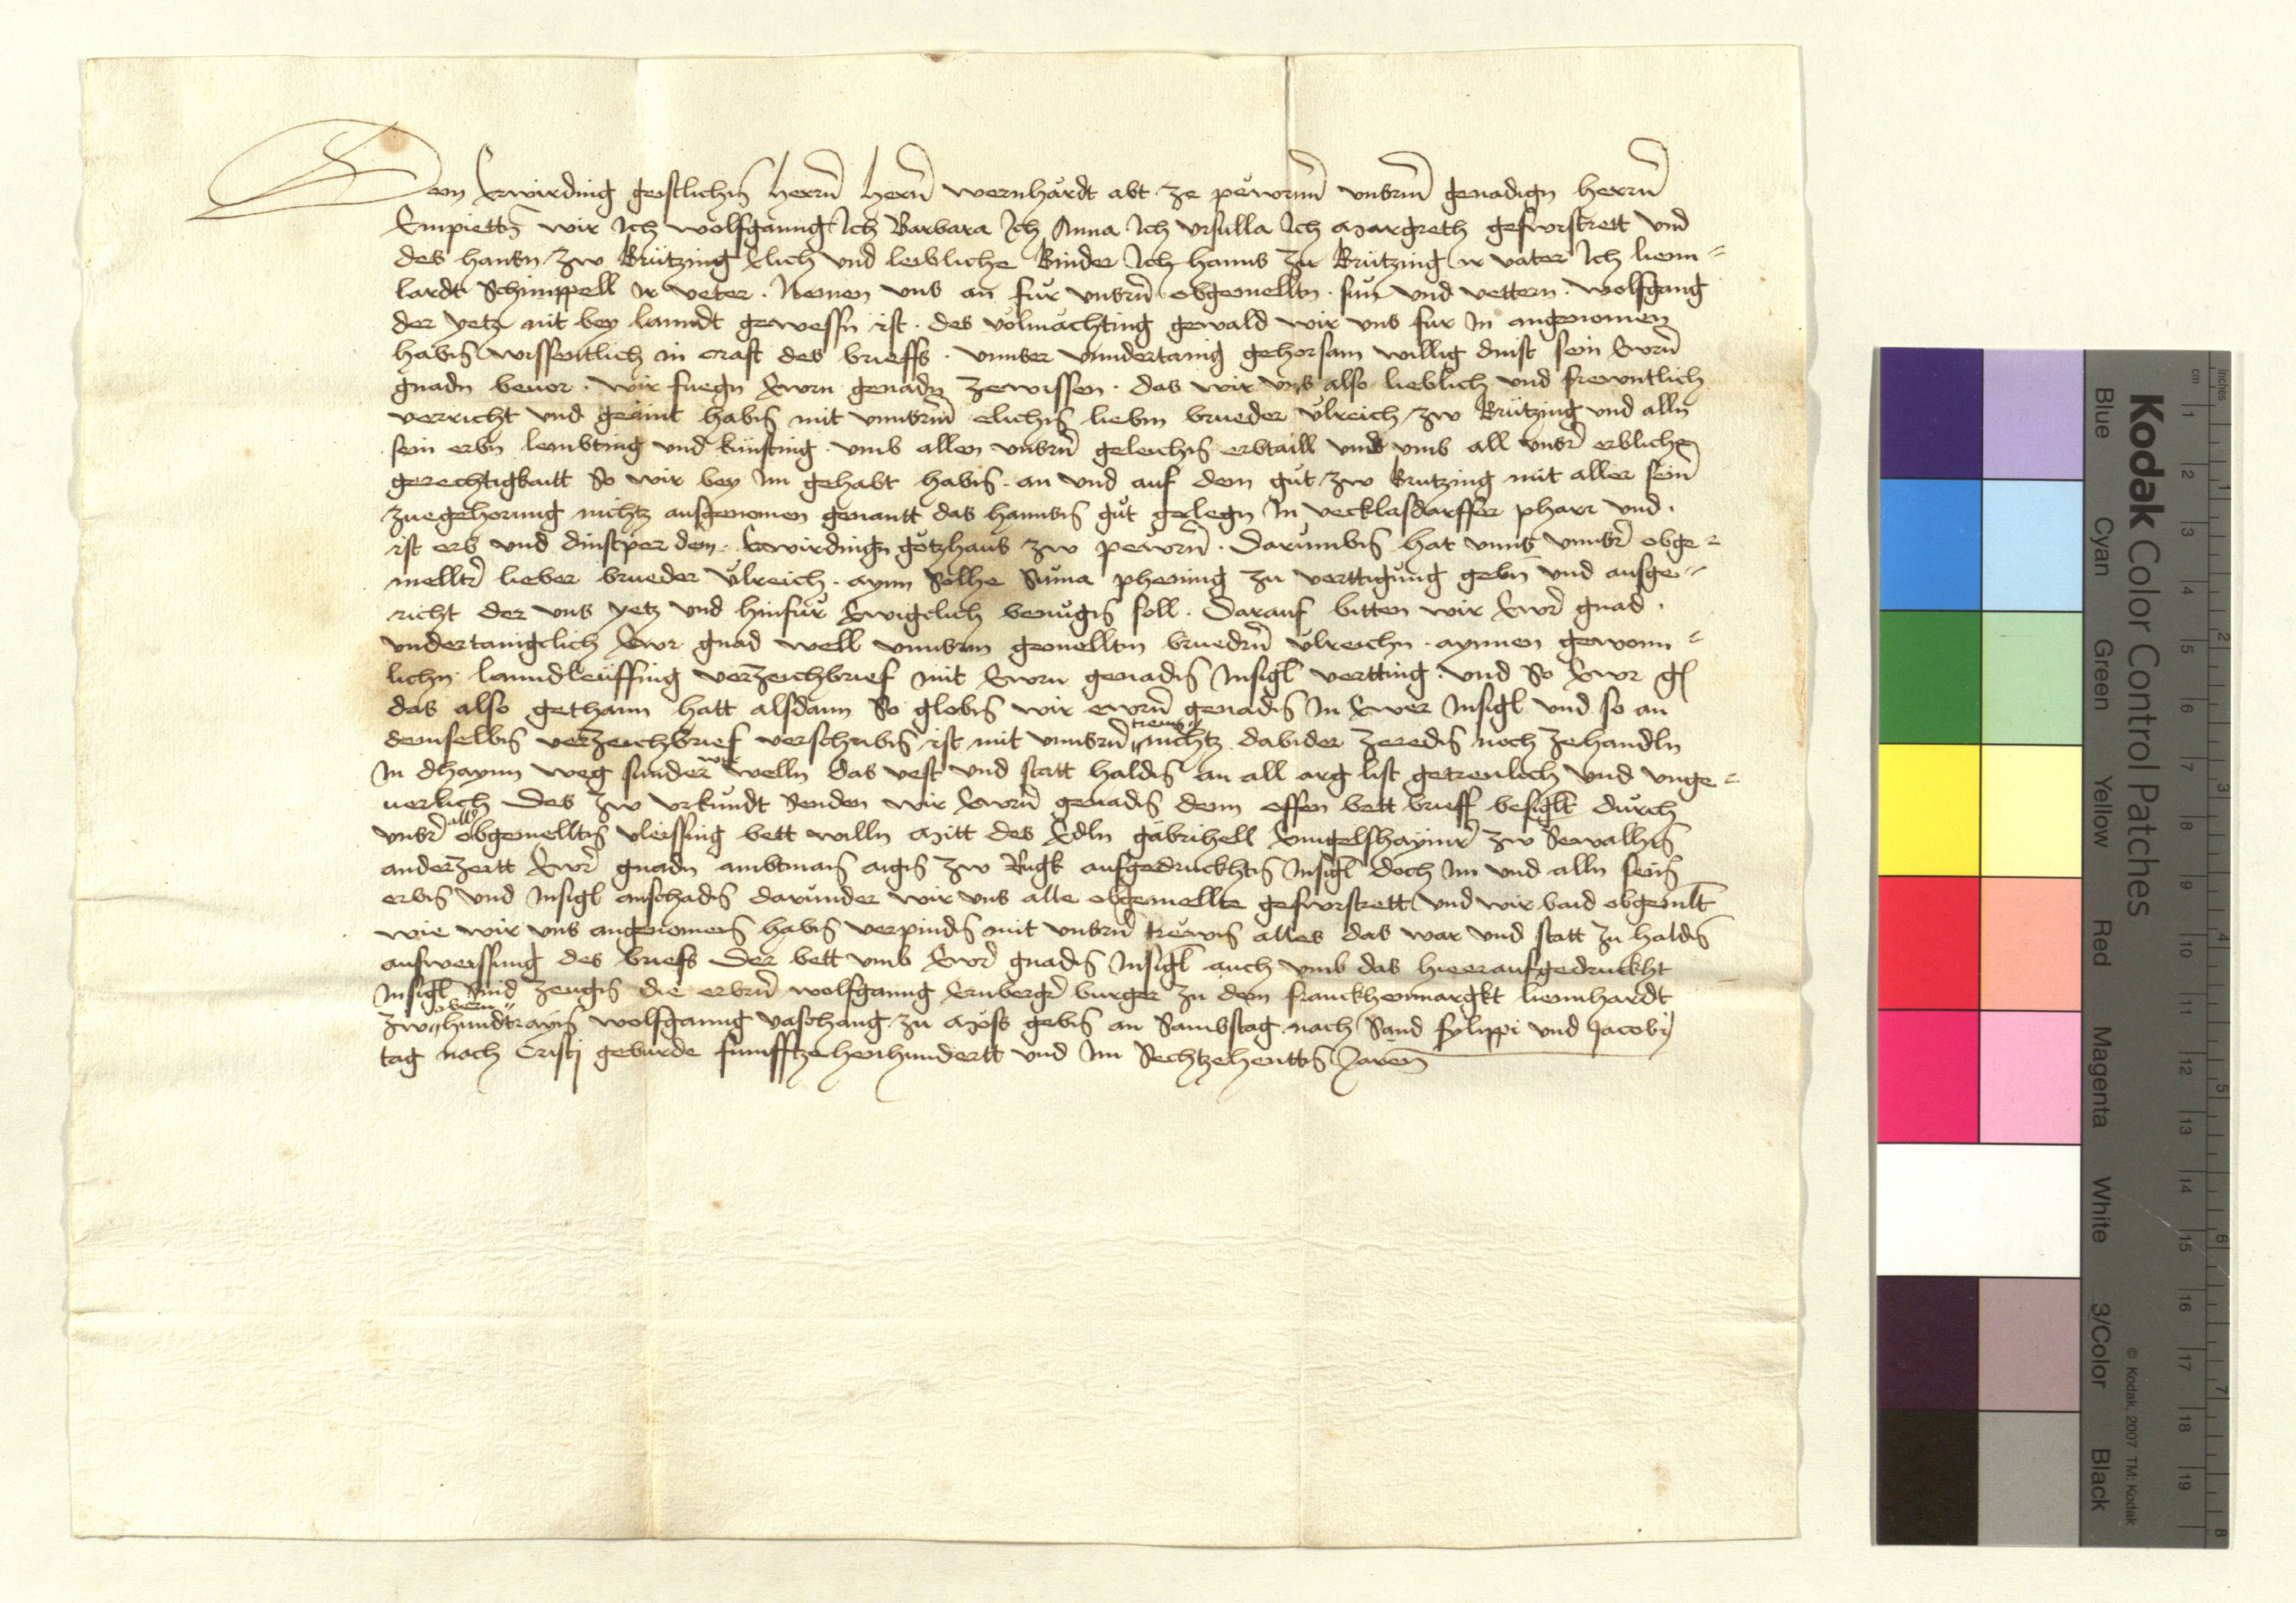 Dem Erwirding geistlichn herrn hern wernhardt abt ze pewrnn unsrm genadign herrn
Empiettn wir Ich wolfganng Ich Barbara Ich Anna Ich ursulla Ich Margreth geswistrett und
des hansn zw Krützing Elich und leibliche kinder Ich hanns zu Krützing ir vater Ich lienn=
lardt Schimppell ir veter. Nemen uns an für unsrn obgemelltn. sun und vettern. wolfgang
der yetz nit bey lanndt gewessn ist. des volmachting gewald wir uns fur In angenomen
habn wissentlich in craft des brieffs. unnser unndertanig gehorsam willig dinst sein Ewrn
gnadn bevor. wir fuegn Ewrn genadn zewissen. das wir uns also lieblich und frewntlich
verricht und geaint habn mit unnsrm elichn liebm brueder ulreich zw Krützing und alln
sein erbn lembting und künfting. umb allen unsrn geleichn erbtaill und umb all unsr erblichn
gerechtigkaitt So wir bey Im gehabt habn. an und auf dem gut zw Krutzing mit aller sein
zuegehorung nichtz ausgenomen genantt das hannsn gut gelegn In vecklasdarffer pharr und.
ist erb und dinstper dem. Erwirdingn gotzhaus zw pewrn. Darumbn hat unns unnsr obge=
melltr lieber brueder ulreich. aynn Solhe Suma phening zu verttigung gebn und ausge=
richt der uns yetz und hinfur Ewigclich benugn soll. Darauf bitten wir Ewr gnad.
undertanigclich Ewr gnad well unnsrm gemelltm bruedrn ulreichn. aynnen gewonn=
lichn lanndleuffing verzeichbrief mit Ewrn genadn Insigl vertting. und So Ewr g
das also gethann hatt alsdann So globn wir ewrn genadn In Ewer Insigl und so an
demselbn verzeichbrief verschribn ist mit unnsrn trewn nichtz dawider zeredn noch zehandln
In dhaynn weg sunder wir welln das vest und statt haldn an all arg list getreulich und unge=
uerlich Des zw urkundt Senden wir Ewrn genadn denn offen bett brieff besiglt durch
unsr all obgemelltn vleissing bett willn Mitt des Edln gabrihell Enngelshaymr zw Sewalhn
anderzeitt Ewr gnadn ambtman aign zw Rugk aufgedruckhtn Insigl doch Im und alln sein
erbn und Insigl anschadn darunder wir uns alle obgemellte geswistrett und wir baid obgemlt
wie wir uns angenomen habn verpindn mit unsrn trewn alles das war und statt zu haldn
ausweissung des briefs Der bett umb Ewr gnadn Insigl auch umb das hieeraufgedruckht
Insigl Sind zeugn die erbrn wolfganng Ernbergr burger zu dem franckhenmargkt liennhardt
zw obern hundtrayn wolfganng vaschang zu Moss gebn an Sambstag nach Sand fylippi und Jacobj
tag nach Cristj geburde funfftzehenhundertt und Im Sechtzehenttn Jaren
Kodak Color Control Patches
Blue Cyan Green Yellow Red Magenta White 3/Color Black
© Kodak, 2007 TM: Kodak
cm 1 2 3 4 5 6 7 8 9 10 11 12 13 14 15 16 17 18 19
inches 1 2 3 4 5 6 7 8